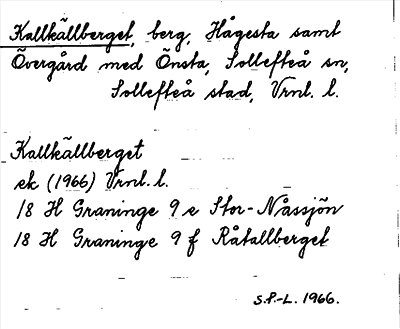 Kallkällberget, berg, Hågesta samt
Övergård med Önsta, Sollefteå sn,
Sollefteå stad, Vrnl. l.
Kallkällberget
ek (1966) Vrnl. l.
18 H Graninge 9 e Stor-Nåssjön
18 H Graninge 9 f Råtallberget
S.P.-L. 1966.